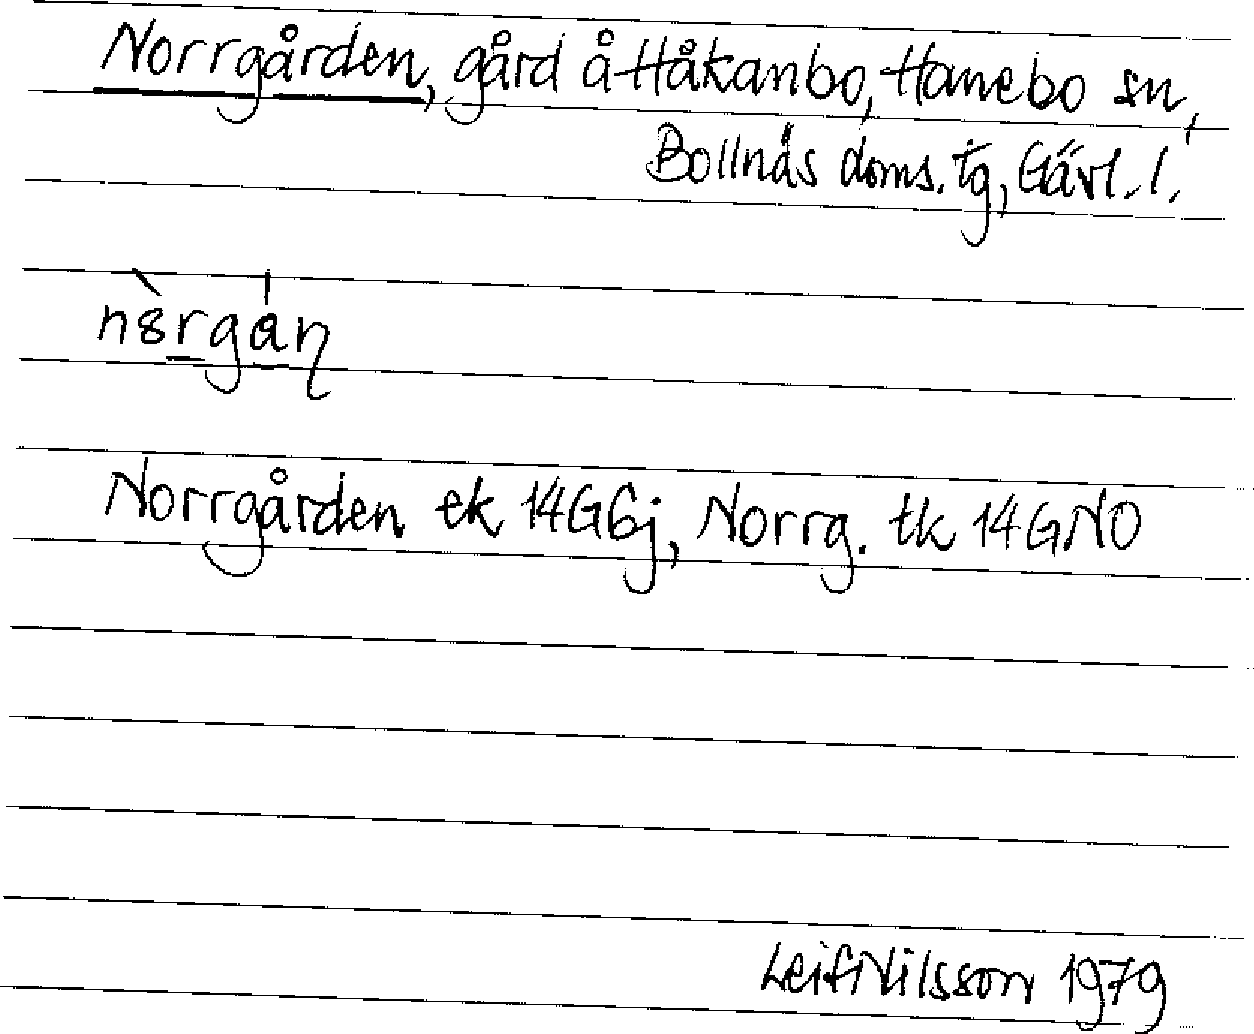 Norrgården, gård å Håkanbo, Hanebo sn,
Bollnäs doms. tg, Gävl. l.
Norrgården ek 14G6j, Norrg. tk 14GNO
Leif Nilsson 1979